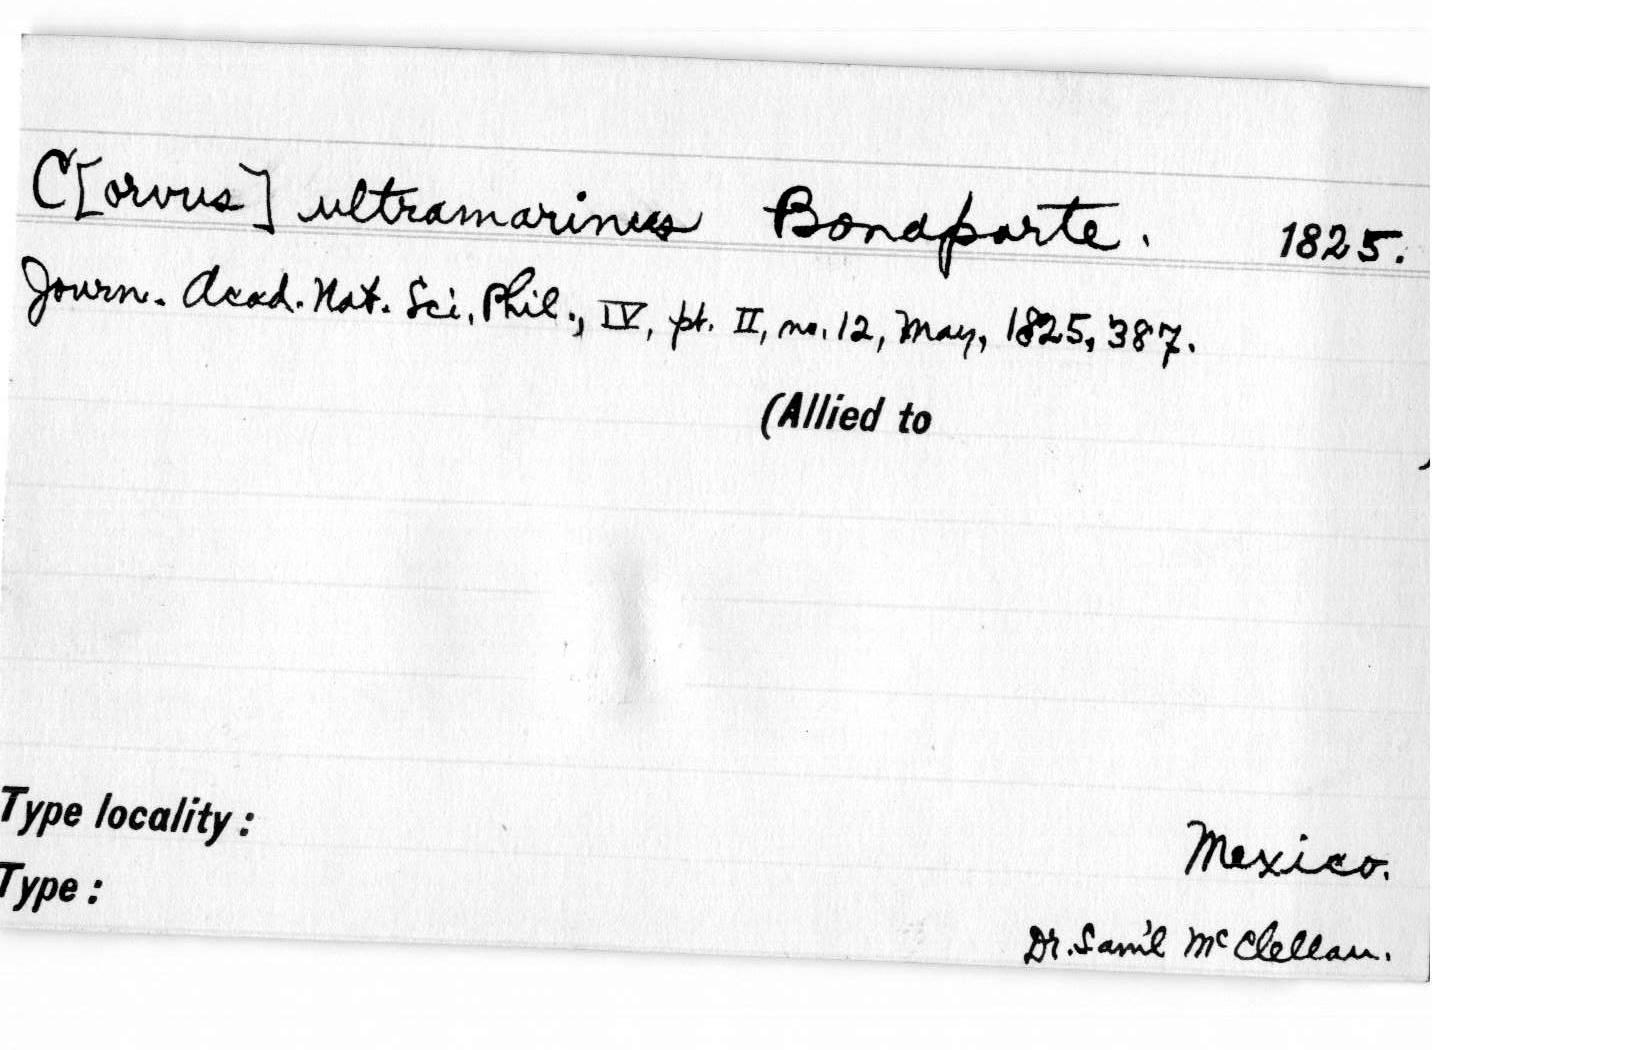 C[orvus] ultramarinus Bonaparte. 1825.
Journ. Acad. Nat. Sci. Phil., IV, pt. II, no. 12, May, 1825, 387.
(Allied to )
Type locality: Mexico.
Type: Dr. Sam'l McClellan.